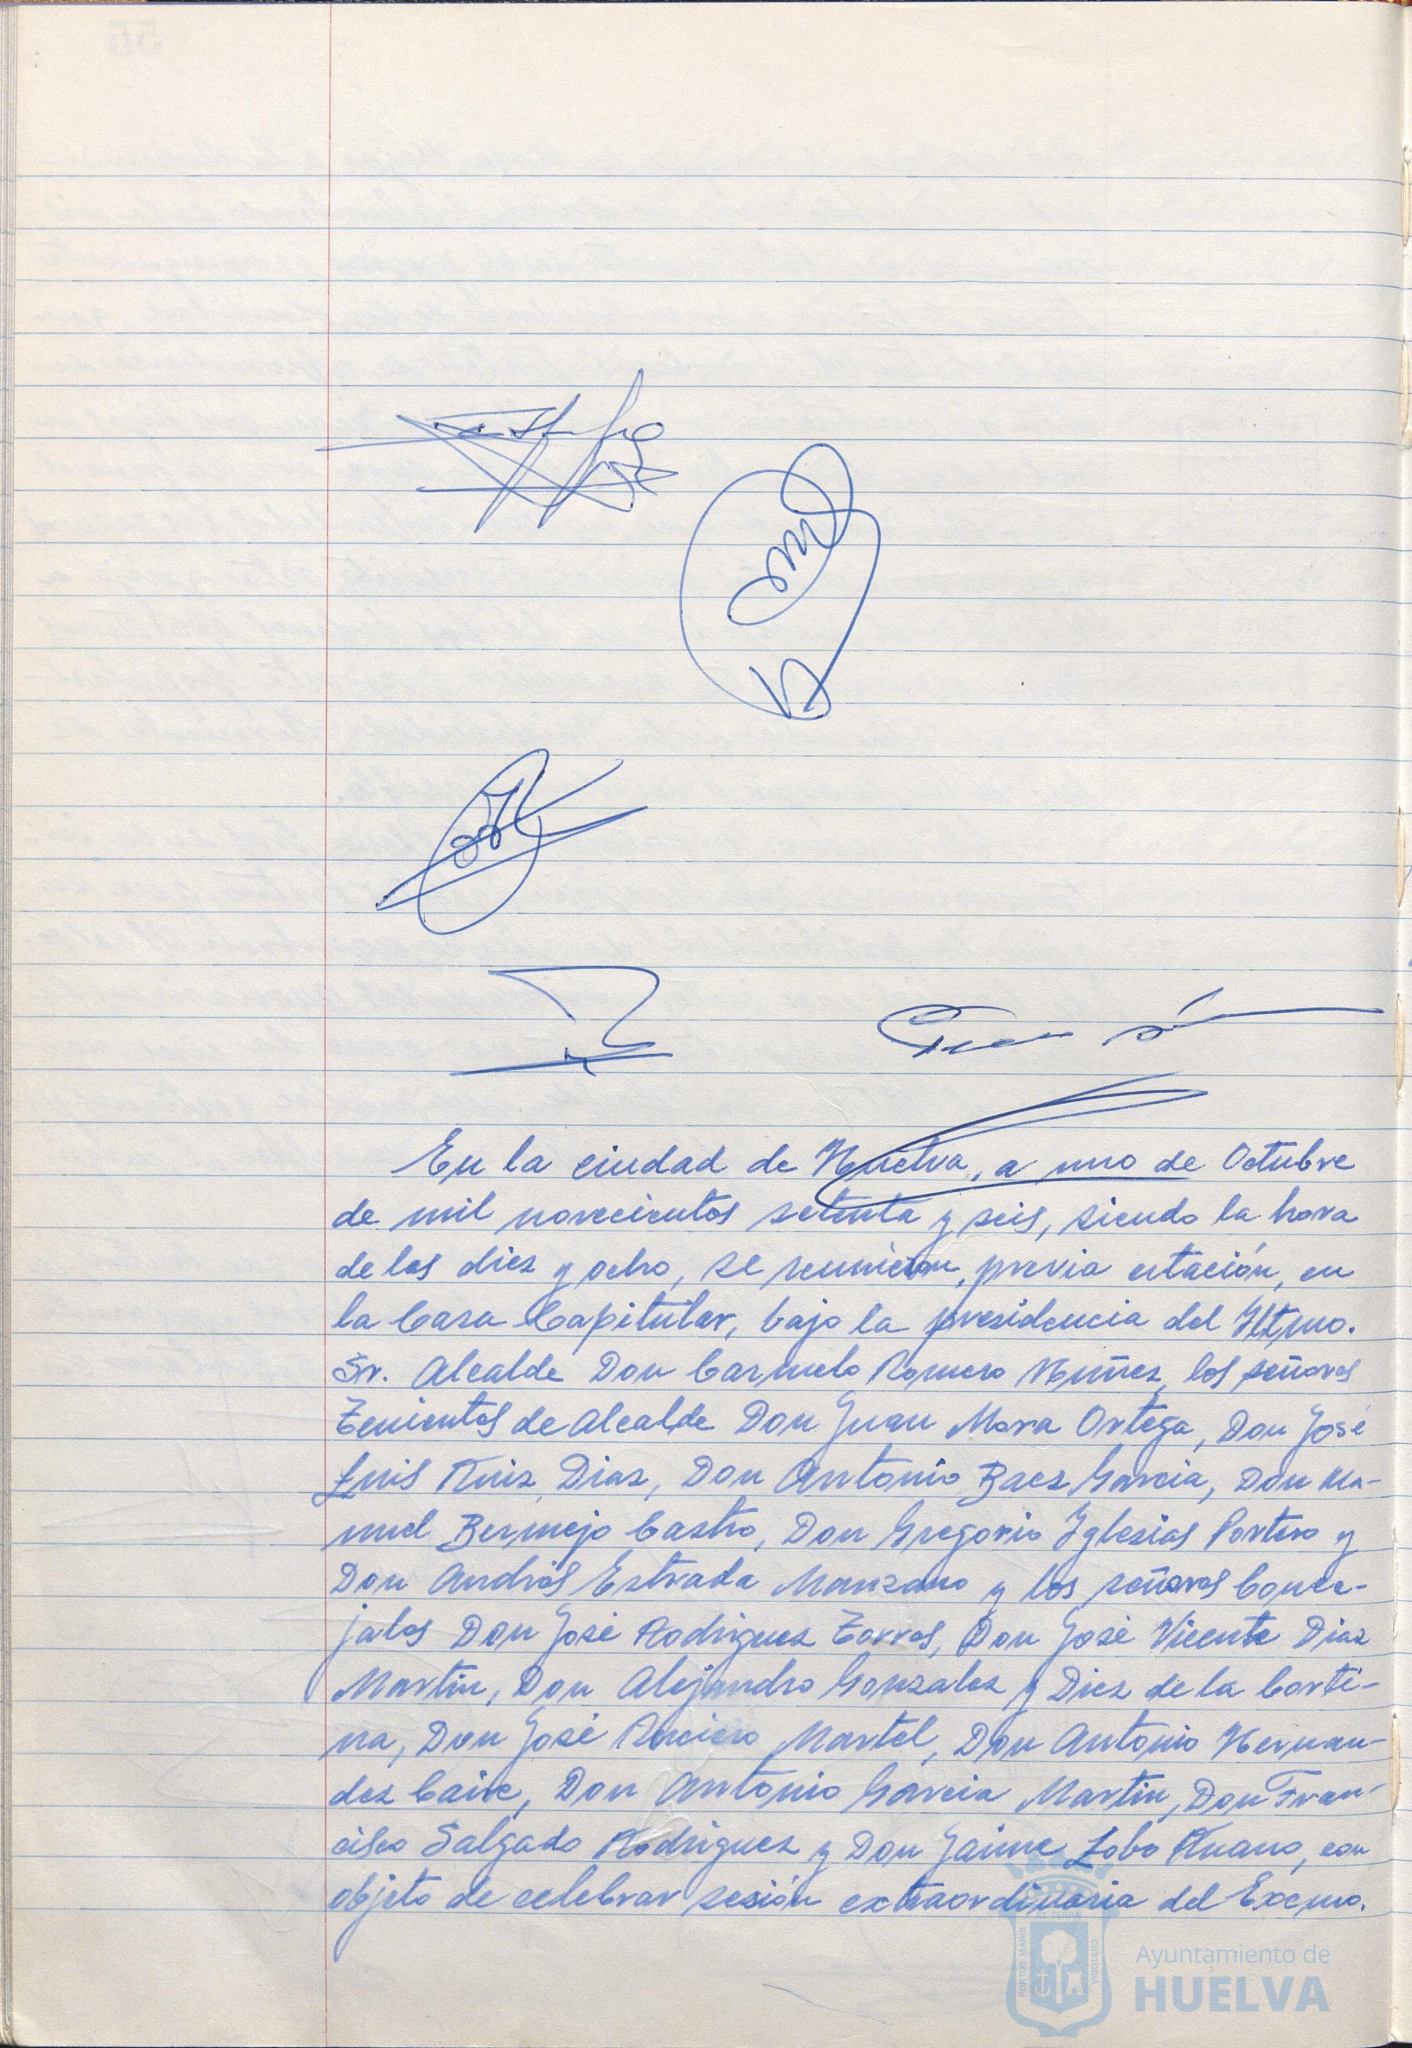 En la ciudad de Huelva, a uno de Octubre
de mil novecientos setenta y seis, siendo la hora
de las diez y ocho, se reunieron, previa citación, en
la Casa Capitular, bajo la presidencia del Iltmo.
Sr. Alcalde Don Carmelo Romero Nuñez, los señores
Tenientes de Alcalde Don Juan Mora Ortega, Don José
Luis Ruiz Diaz, Don Antonio Baez Garcia, Don Ma-
nuel Bermejo Castro, Don Gregorio Yglesias Portero y
Don Andrés Estrada Manzano y los señores Conce-
jales Don José Rodriguez Torres, Don José Vicente Diaz
Martin, Don Alejandro Gonzalez y Diez de la Corti-
na, Don José Martel, Don Antonio Hernan-
dez, Don Antonio Garcia Martin, Don Fran-
cisco Salgado Rodriguez y Don Jaime Lobo Ruano, con
objeto de celebrar sesión extraordinaria del Excmo.
Ayuntamiento de
HUELVA